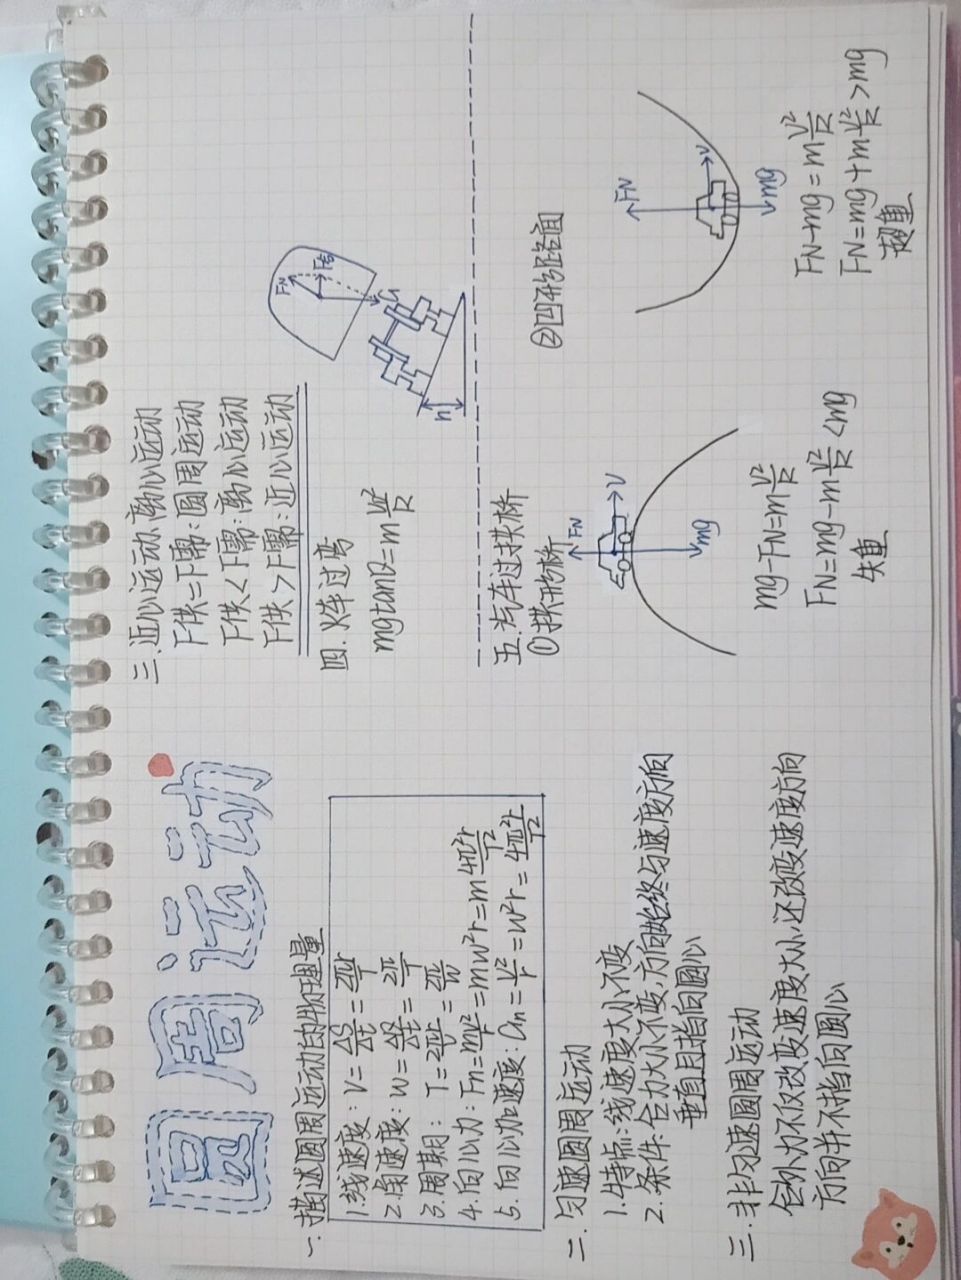 圆周运动
一.描述圆周运动的物理量
1.线速度：V=ΔS/Δt=2πr/T
2.角速度：w=Δθ/Δt=2π/T
3.周期：T=2πr/v=2π/w
4.向心力：Fn=mv²/r=mw²r=m4π²r/T²
5.向心加速度：an=v²/r=w²r=4π²r/T²
二.匀速圆周运动
1.特点：线速度大小不变
2.条件：合力大小不变，方向始终与速度方向
垂直且指向圆心
三.非匀速圆周运动
合外力不仅改变速度大小，还改变速度方向
方向并不指向圆心
三.近心运动，离心运动
F供=F需：圆周运动
F供<F需：离心运动
F供>F需：近心运动
四.火车过弯
mgtanθ=mv²/R
FN
F合
h
五.汽车过拱桥
①拱形桥
FN
V
mg
mg-FN=mv²/R
FN=mg-mv²/R<mg
失重
②凹形路面
FN
v
mg
FN-mg=mv²/R
FN=mg+mv²/R>mg
超重